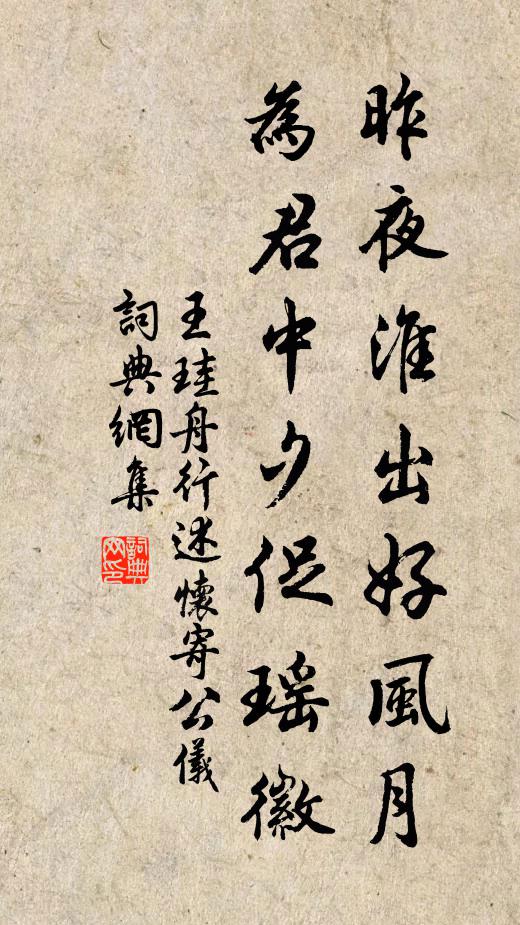 昨夜淮出好風月
為君中夕促瑶徽
王珪舟行述懷寄公儀
詞典網集
詞典网印